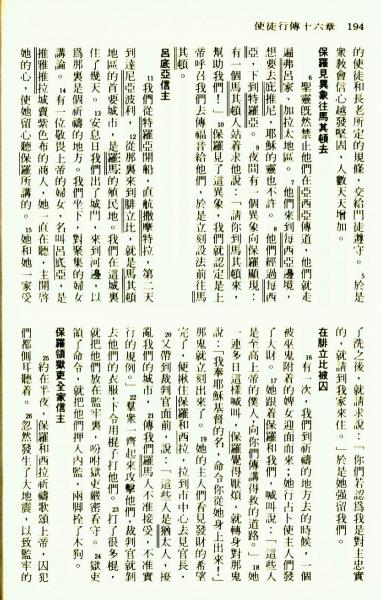 使徒行傳十六章 194
的使徒和長老所定的規條，交給門徒遵守。5於是
眾教會信心越發堅固，人數天天增加。
保羅見異象往馬其頓去
6聖靈既然禁止他們在亞西亞傳道，他們就走
遍弗呂家、加拉太地區。7他們來到每西亞邊境，
想要去庇推尼，耶穌的靈也不許。8他們經過每西
亞，下到特羅亞。9夜間有一個異象向保羅顯現，
有一個馬其頓人站着求他說：「請你到馬其頓來，
幫助我們！」10保羅見了這異象，我們就認定是上
帝呼召我們去傳福音給他們，於是立刻設法前往馬
其頓。
呂底亞信主
11我們從特羅亞開船，直航撒摩特拉，第二天
到達尼亞波利，12從那裏來到腓立比，就是馬其頓
地區的首要城市，是羅馬的殖民地。我們在這城裏
住了幾天。13安息日我們出了城門，來到河邊，以
為那裏是個祈禱的地方。我們坐下，對聚集的婦女
講論。14有一位敬畏上帝的婦女，名叫呂底亞，是
推雅推拉城賣紫色布的商人，她一直在聽，主開啟
她的心，使她留心聽保羅所講的。15她和她一家受
了洗之後，就請求說：「你們若認為我是對主忠實
的，就請到我家來住。」於是她強留我們。
在腓立比被囚
16有一次，我們到祈禱的地方去的時候，一個
被巫鬼附着的婢女迎面而來；她行占卜使主人們發
了大財。17她跟着保羅和我們，喊叫說：「這些人
是至高上帝的僕人，向你們傳講得救的道路。」18她
一連多日這樣喊叫，保羅覺得厭煩，就轉身對那鬼
說：「我奉耶穌基督的名，命令你從她身上出來！」
那鬼就立刻出來了。19她的主人們看見發財的希望
完了，便揪住保羅和西拉，拉到市中心去見官長，
20又帶到裁判官面前，說：「這些人是猶太人，擾
亂我們的城市，21傳我們羅馬人不准接受、不准實
行的規例。」22羣眾一齊起來攻擊他們，裁判官就剝
去他們的衣服，下令用棍子打他們。23打了很多棍，
就把他們放在監牢裏，吩咐獄吏嚴密看守。24獄吏
領了命令，就把他們押入內監，兩腳拴了木狗。
保羅領獄吏全家信主
25約在半夜，保羅和西拉祈禱歌頌上帝，囚犯
們都側耳聽着。26忽然發生了大地震，以致監牢的